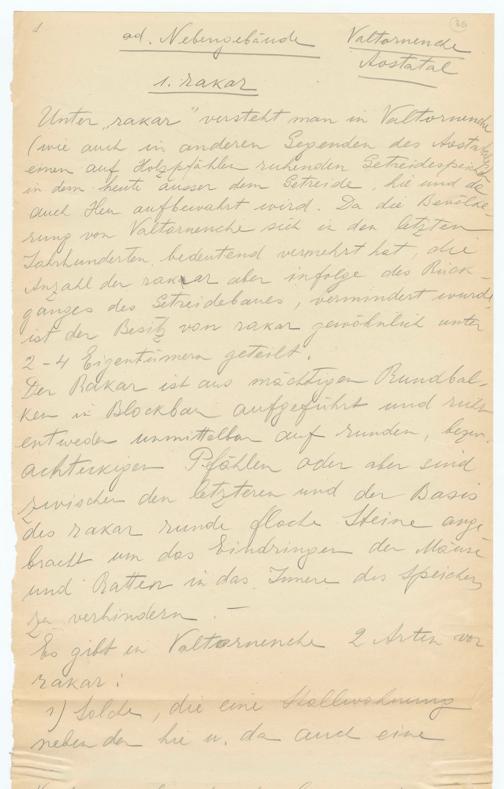 1
36
ad. Nebengebäude Valtornenche
Aostatal
1. rakar
Unter "rakar" versteht man in Valtornenche
(wie auch in anderen Gegenden des Aostatales)
einen auf Holzpfählen ruhenden Getreidespeicher
in dem heute ausser dem Getreide, hie und da
auch Heu aufbewahrt wird. Da die Bevölke-
rung von Valtornenche sich in den letzten
Jahrhunderten, bedeutend vermehrt hat, die
Anzahl der rakar aber infolge des Rück-
ganges des Getreidebaues, vermindert wurde,
ist der Besitz von rakar gewöhnlich unter
2-4 Eigentümern geteilt.
Der Rakar ist aus mächtigen Rundbal-
ken in Blockbau aufgeführt und ruht
entweder unmittelbar auf runden, bezw.
achteckigen Pfählen oder aber sind
zwischen den letzteren und der Basis
des rakar runde flache Steine ange-
bracht um das Eindringen der Mäuse
und Ratten in das Innere des Speichers
zu verhindern. —
Es gibt in Valtornenche 2 Arten von
rakar:
1) Solche, die eine Stallwohnung
neben der hie u. da auch eine